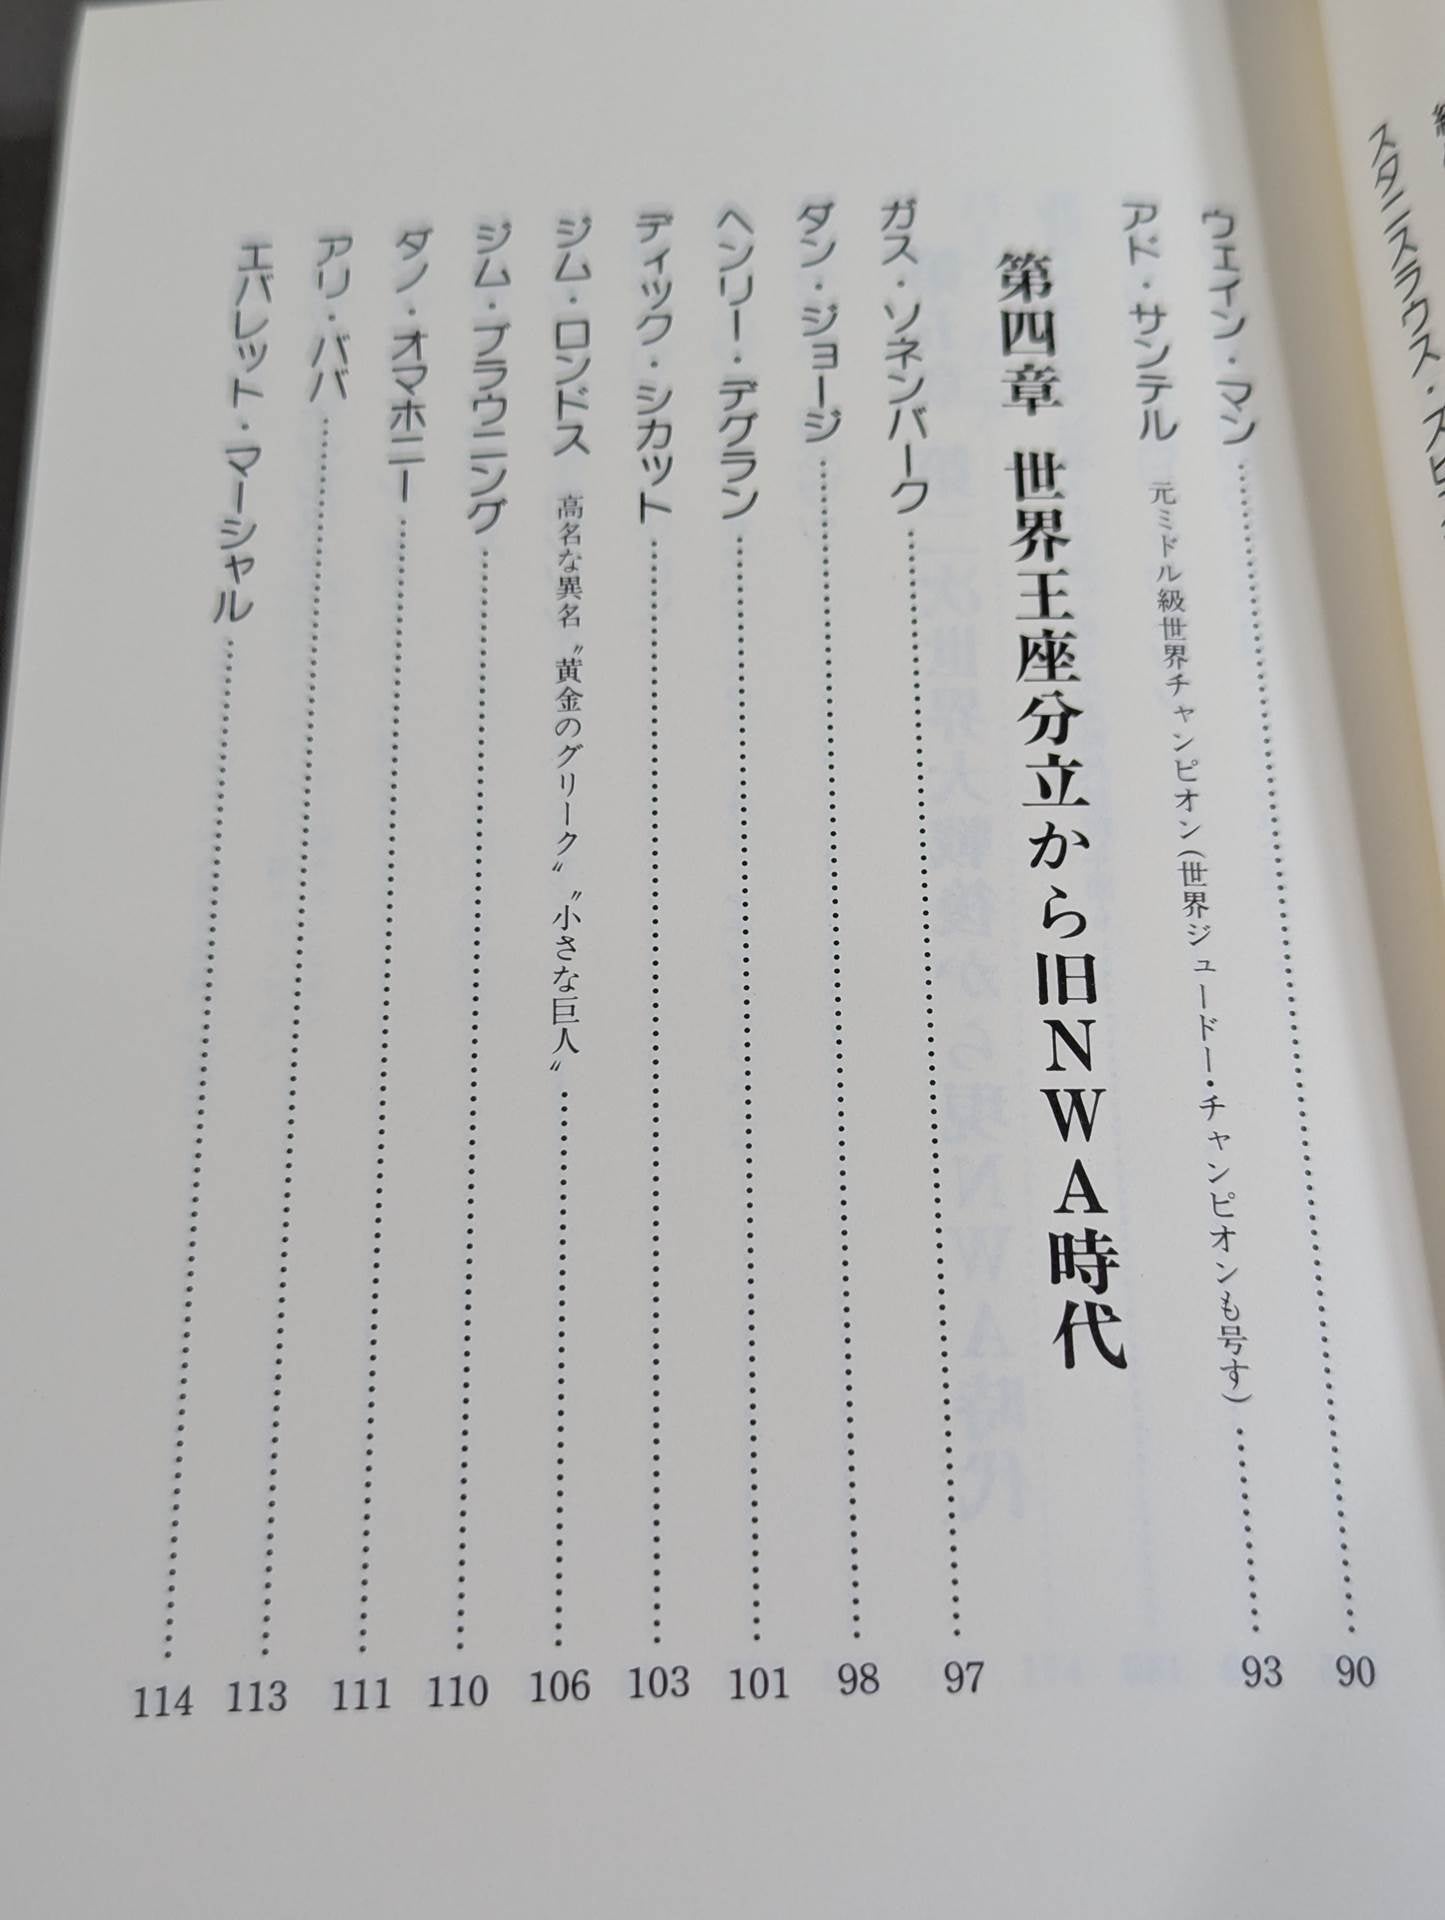 スタニスラウス・ズビ
ウェイン・マン……………90
アド・サンテル 元ミドル級世界チャンピオン（世界ジュードー・チャンピオンも号す）……………93
第四章 世界王座分立から旧NWA時代
ガス・ソネンバーク……………97
ダン・ジョージ……………98
ヘンリー・デグラン……………101
ディック・シカット……………103
ジム・ロンドス 高名な異名〝黄金のグリーク〟〝小さな巨人〟……………106
ジム・ブラウニング……………110
ダノ・オマホニー……………111
アリ・ババ……………113
エバレット・マーシャル……………114